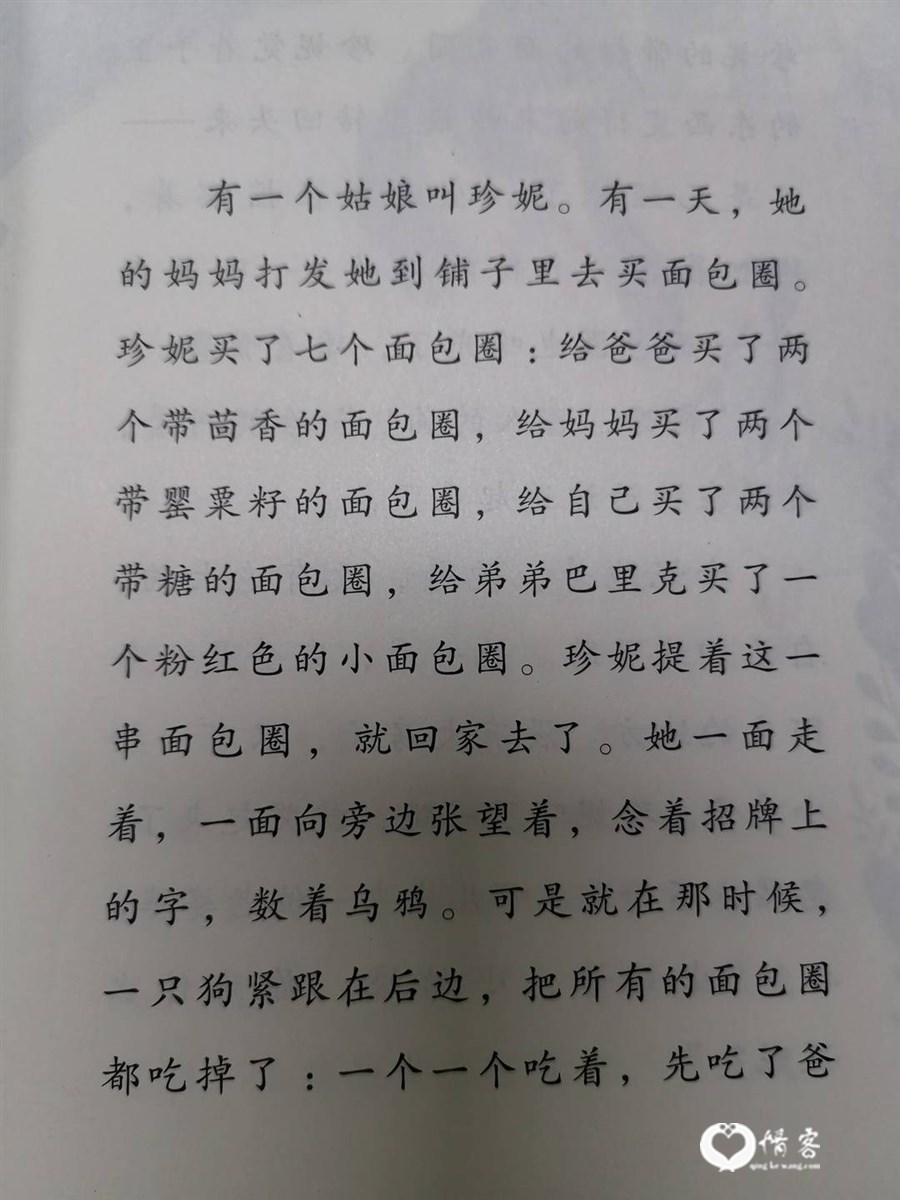 有一个姑娘叫珍妮。有一天，她
的妈妈打发她到铺子里去买面包圈。
珍妮买了七个面包圈：给爸爸买了两
个带茴香的面包圈，给妈妈买了两个
带罂粟籽的面包圈，给自己买了两个
带糖的面包圈，给弟弟巴里克买了一
个粉红色的小面包圈。珍妮提着这一
串面包圈，就回家去了。她一面走
着，一面向旁边张望着，念着招牌上
的字，数着乌鸦。可是就在那时候，
一只狗紧跟在后边，把所有的面包圈
都吃掉了：一个一个吃着，先吃了爸
情客
qingkewang.com